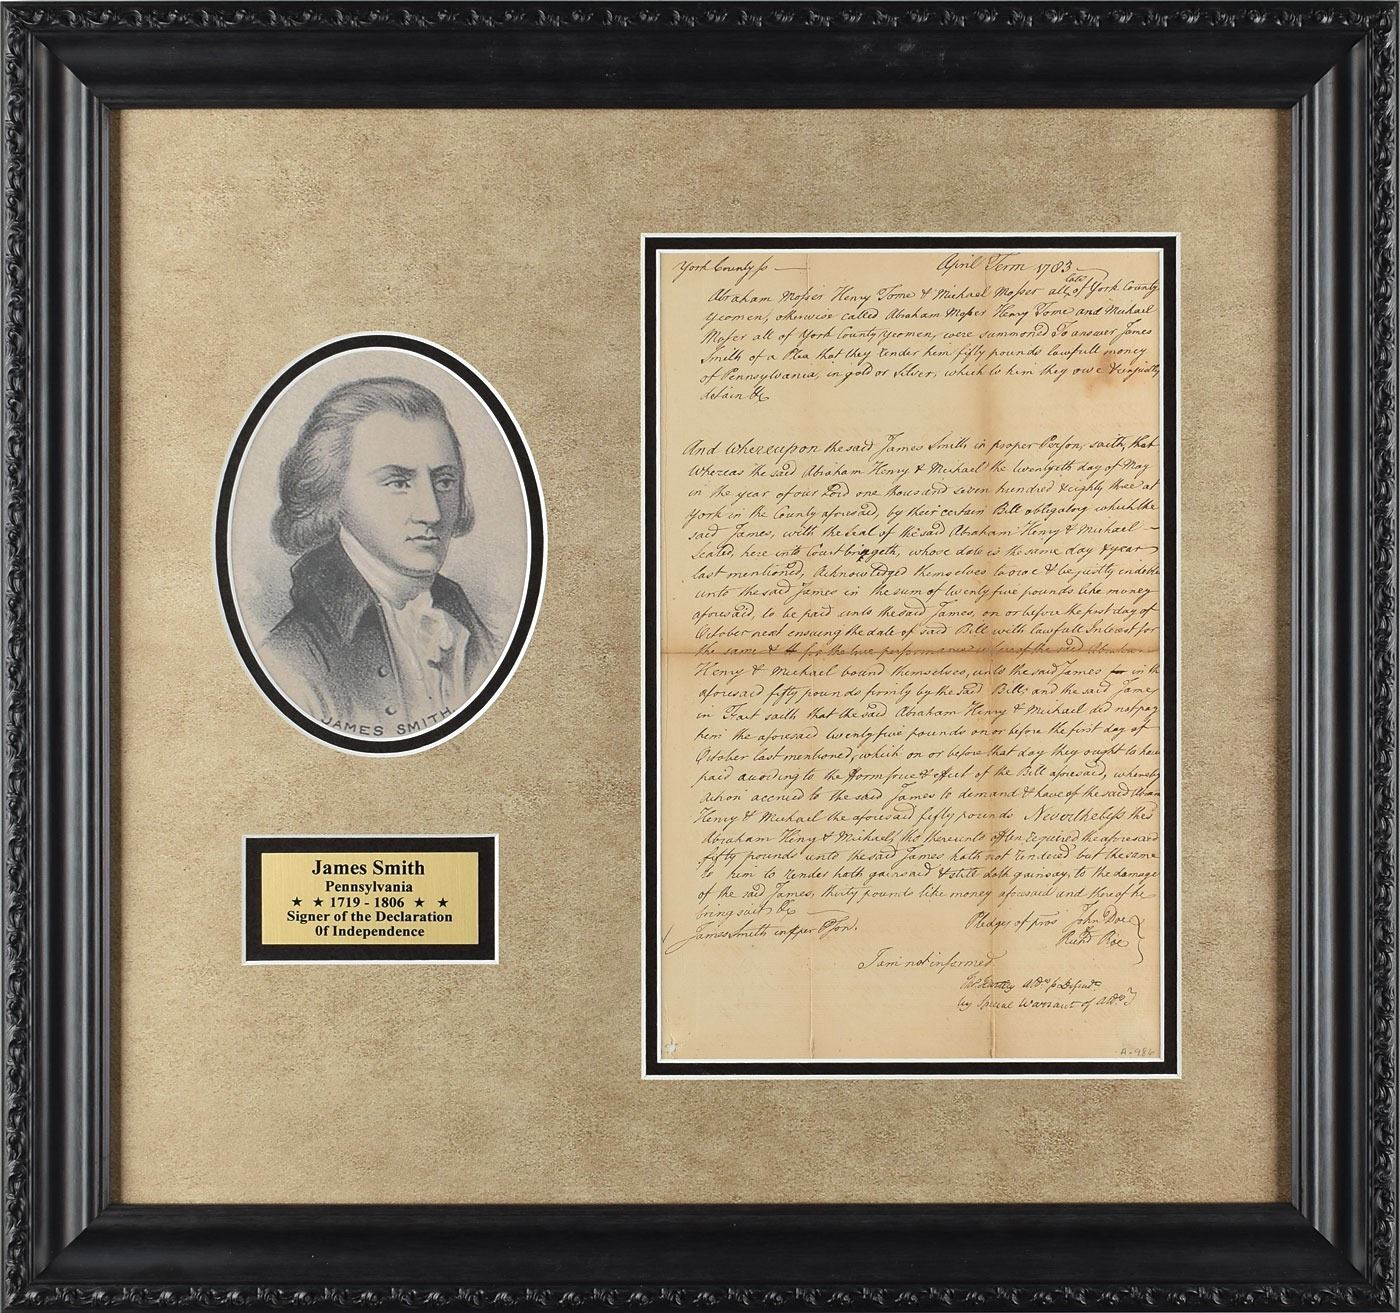 JAMES SMITH.
James Smith
Pennsylvania
★ ★ 1719 - 1806 ★ ★
Signer of the Declaration
Of Independence
York County ss
April Term 1783
Abraham Mosser Henry Tome & Michael Mosser all late of York County
Yeomen, otherwise called Abraham Moser Henry Tome and Michael
Moser all of York County, yeomen, were summoned To answer James
Smith of a Plea that they render him fifty pounds lawfull money
of Pennsylvania, in gold or Silver, which to him they owe & unjustly
detain &c
And whereupon the said James Smith in proper Person, saith, that
Whereas the said Abraham Henry & Michael the twentyeth day of May
in the year of our Lord one thousand seven hundred & eighty three at
York in the County aforesaid, by their certain Bill obligatory which the
said James, with the seal of the said Abraham Henry & Michael
Sealed, here into Court bringeth, whose date is the same day & year
last mentioned, Acknowledged themselves to owe & be justly endebted
unto the said James in the sum of twenty five pounds like money
aforesaid, to be paid unto the said James, on or before the first day of
October next ensuing the date of said Bill with lawfull Interest for
the same & for the true performance whereof the said Abraham
Henry & Michael bound themselves, unto the said James in the
aforesaid fifty pounds firmly by the said Bill; and the said James
in Fact saith that the said Abraham Henry & Michael did not pay
him the aforesaid twenty five pounds on or before the first day of
October last mentioned, which on or before that day they ought to have
paid according to the form force & effect of the Bill aforesaid, whereby
Action accrued to the said James to demand & have of the said Abram
Henry & Michael the aforesaid fifty pounds Nevertheless the sd
Abraham Henry & Michael, tho thereunto often required the aforesaid
fifty pounds unto the said James hath not rendered but the same
to him to render hath gainsaid & still doth gainsay, to the damage
of the said James, thirty pounds like money aforesaid and thereof he
brings suit &c
James Smith in pper Pson.
Pledges of pros John Doe
& Richd Roe
I am not informed
Hartley Atto p Defendt
by Special Warrant of Atto
A-986